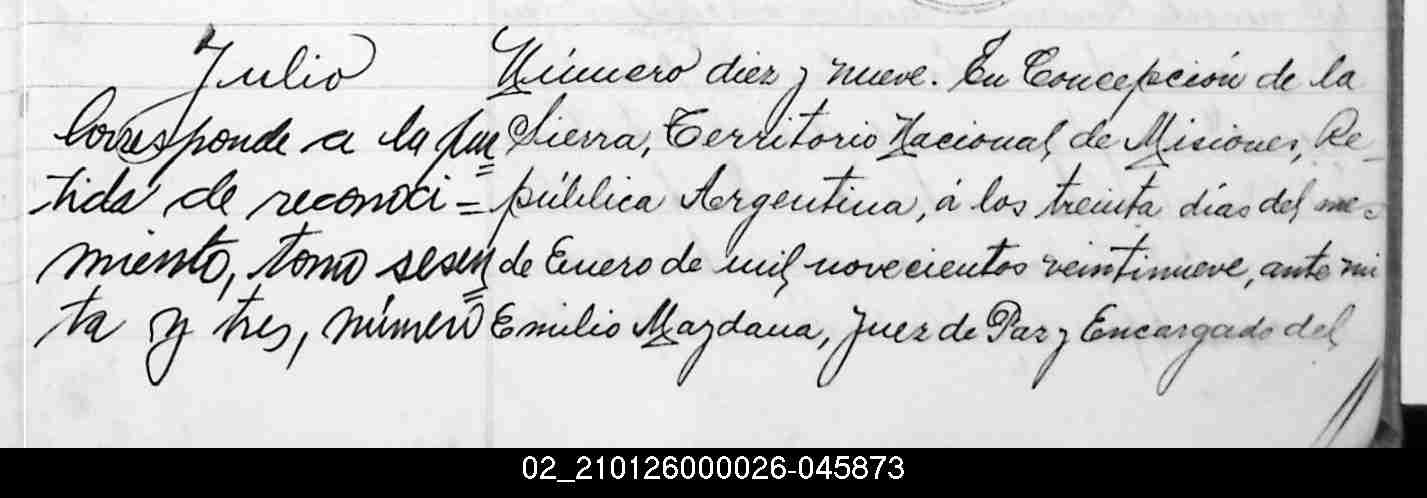 Julio
Corresponde a la par=
tida de reconoci=
miento, tomo sesen=
ta y tres, número
Número diez y nueve. En Concepción de la
Sierra, Territorio Nacional de Misiones, Re-
pública Argentina, á los treinta días del mes
de Enero de mil novecientos veintinueve, ante mi
Emilio Maydana, Juez de Paz y Encargado del
02_210126000026-045873